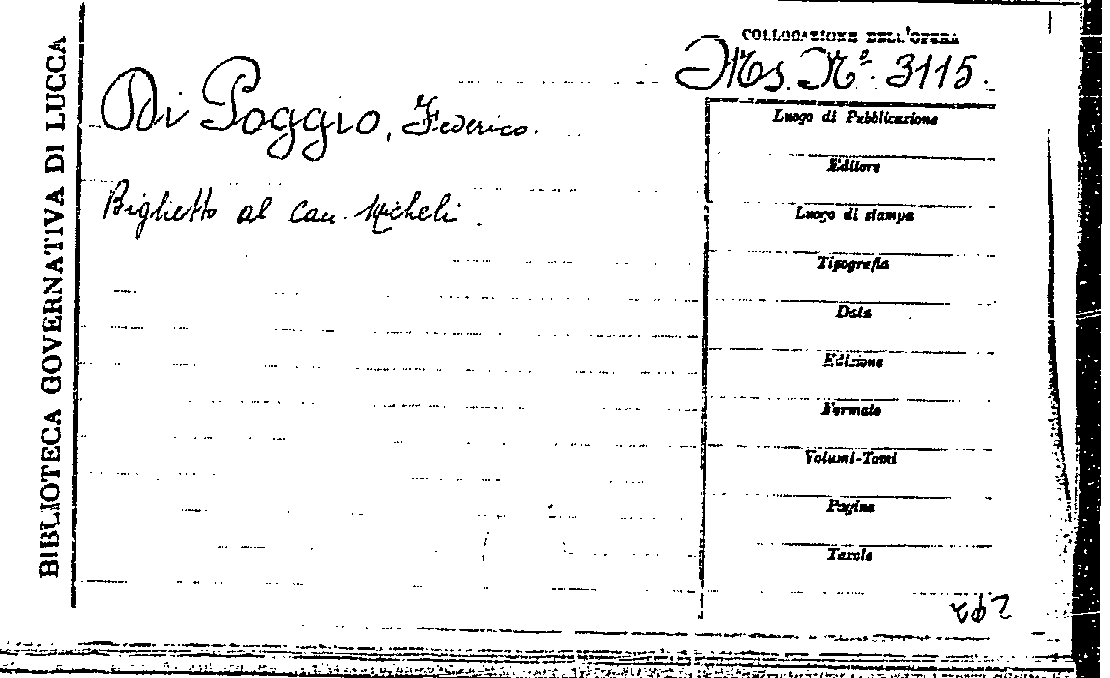 BIBLIOTECA GOVERNATIVA DI LUCCA
COLLOCAZIONE DELL'OPERA
Ms. Nº. 3115.
Di Poggio, Federico.
Biglietto al Can. Micheli.
Luogo di Pubblicazione
Editore
Luogo di stampa
Tipografia
Data
Edizione
Formato
Volumi-Tomi
Pagine
Tavole